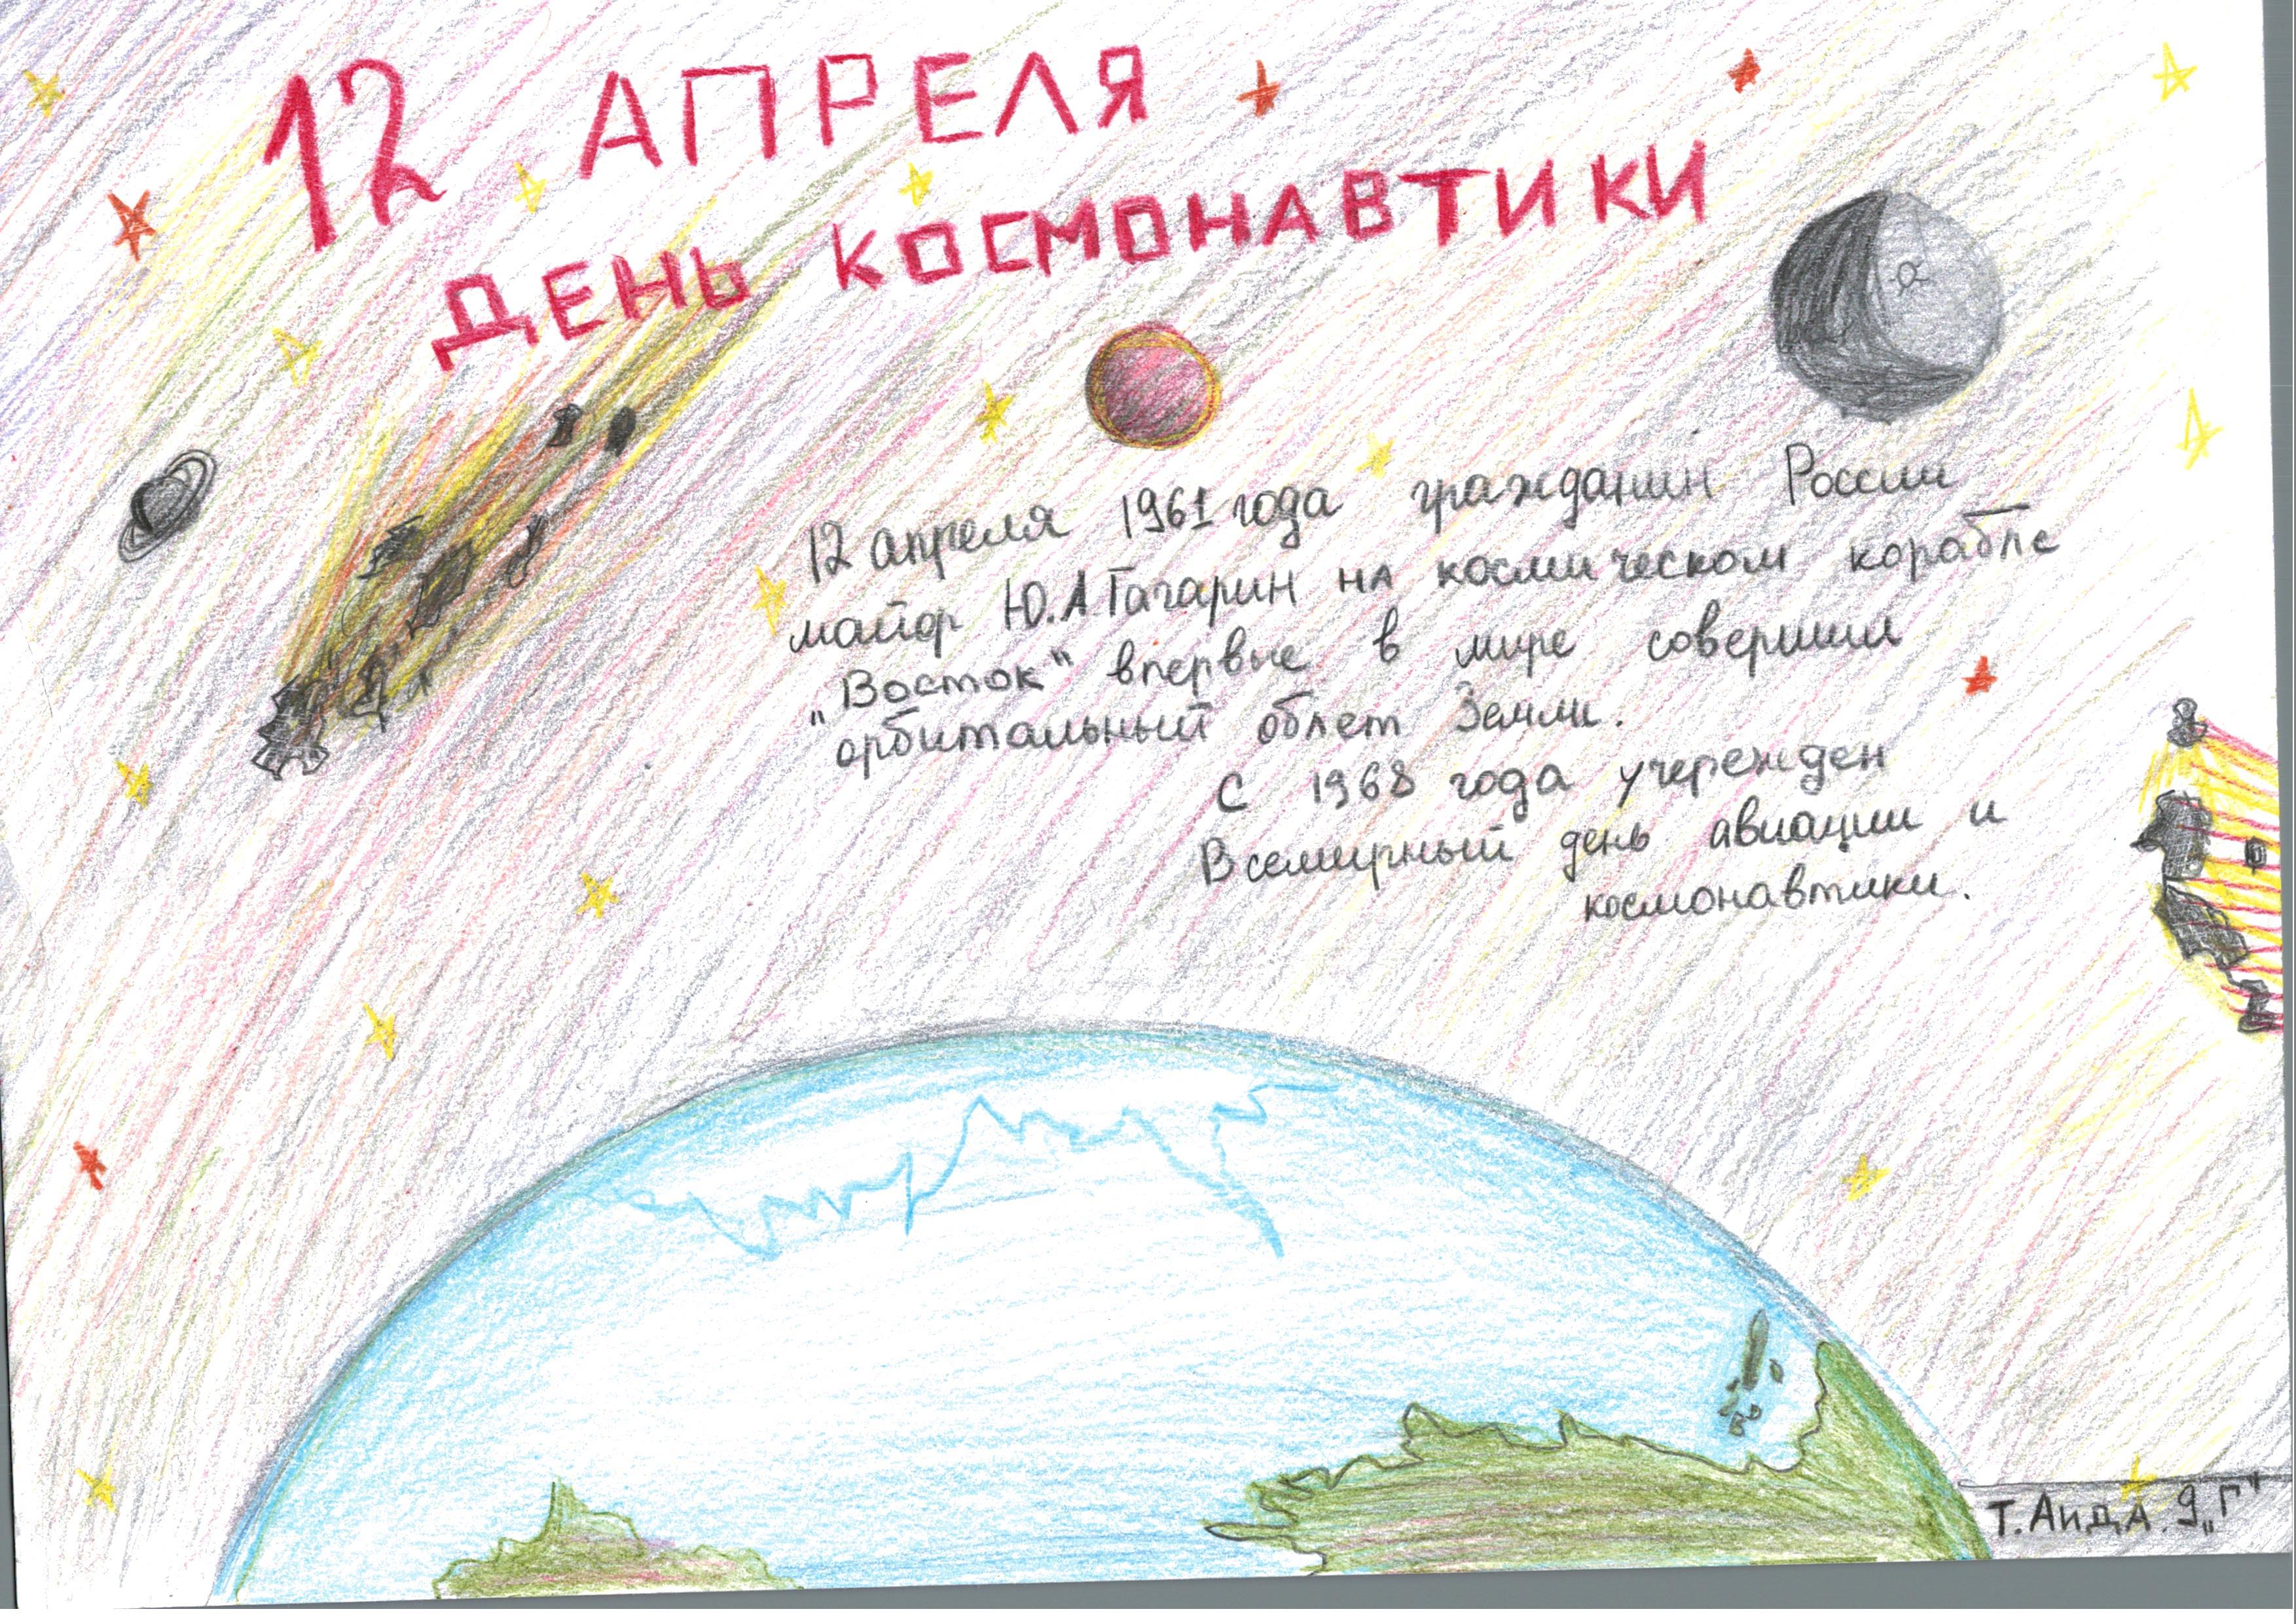 12 АПРЕЛЯ
ДЕНЬ КОСМОНАВТИКИ
12 апреля 1961 года гражданин России
майор Ю.А.Гагарин на космическом корабле
„Восток" впервые в мире совершил
орбитальный облет Земли.
С 1968 года учрежден
Всемирный день авиации и
космонавтики.
Т. Аида. 9„Г"